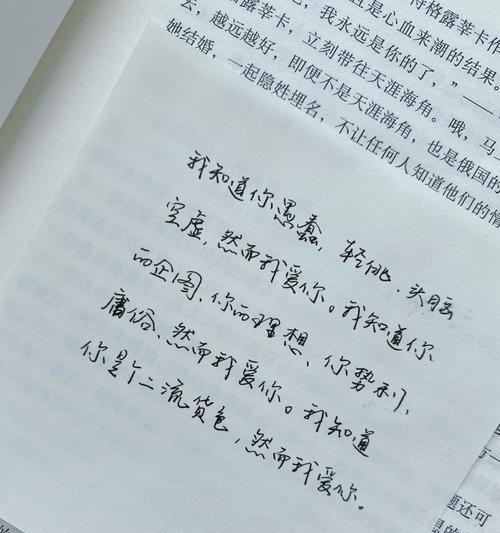 待格露莘卡
且是心血来潮的结果。
，我永远是你的了，”——
去，越远越好，立刻带往天涯海角。哦，马
她结婚，一起隐姓埋名，即便不是天涯海角，也是俄国的
不让任何人知道他们的情
我知道你愚蠢，轻佻、头脑
空虚，然而我爱你。我知道你
而企图、你而理想、你势利、
庸俗、然而我爱你。我知道
你是个二流货色，然而我爱你。
题还可